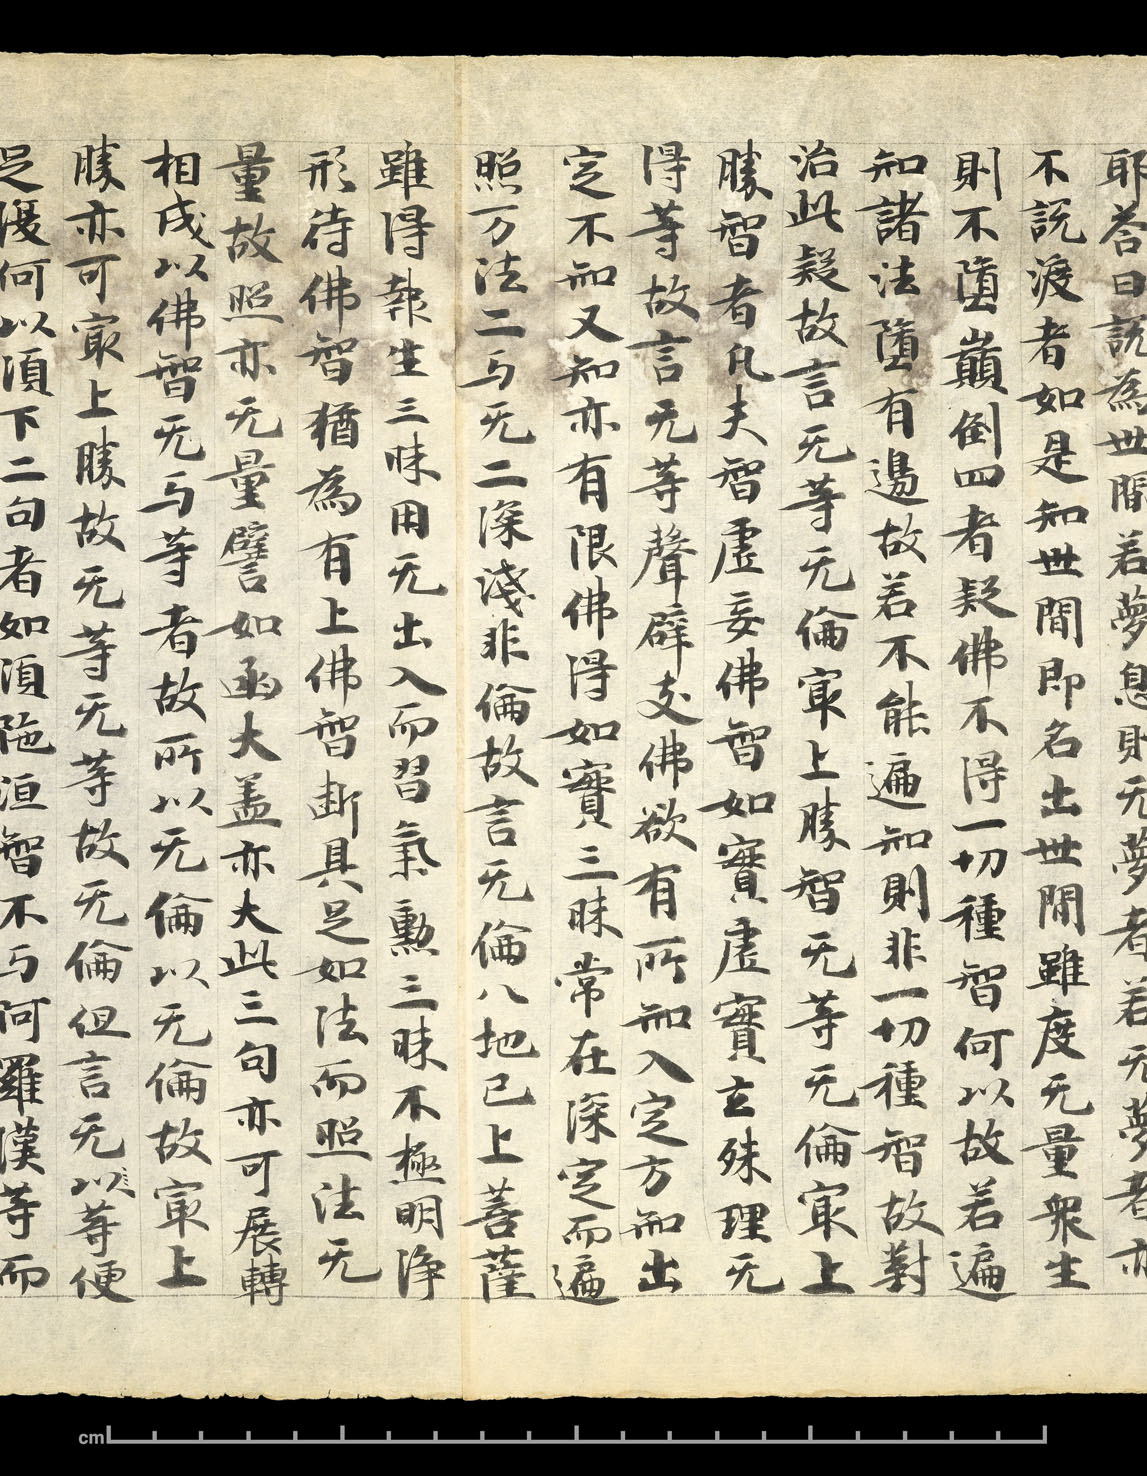 耶荅曰説為世間若夢息則无夢者若无夢者亦
不説渡者如是知世間即名出世間雖度无量衆生
則不墮巔倒四者疑佛不得一切種智何以故若遍
知諸法墮有邊故若不能遍知則非一切種智故對
治此疑故言无等无倫㝡上勝智无等无倫㝡上
勝智者凡夫智虛妄佛智如實虛實玄殊理无
得等故言无等聲辟支佛欲有所知入定方知出
定不知又知亦有限佛得如實三昧常在深定而遍
照万法二与无二深淺非倫故言无倫八地已上菩薩
雖得報生三昧用无出入而習氣勲三昧不極明浄
形待佛智猶為有上佛智断具足如法而照法无
量故照亦无量譬如函大盖亦大此三句亦可展轉
相成以佛智无与等者故所以无倫以无倫故㝡上
勝亦可㝡上勝故无等无等故无倫但言无等便
足復何以須下二句者如須陁洹智不与阿羅漢等而